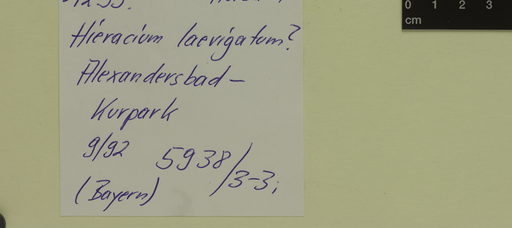 Hieracium laevigatum?
Alexandersbad –
Kurpark
9/92 5938/3-3;
(Bayern)
0 1 2 3
cm